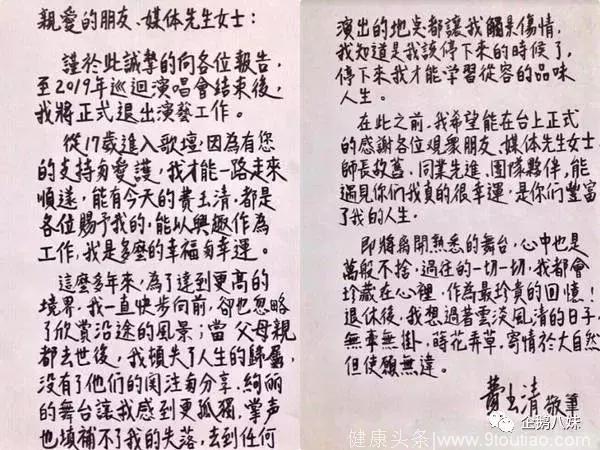 親愛的朋友、媒体先生女士：
謹於此誠摯的向各位報告，
至2019年巡迴演唱會結束後，
我將正式退出演藝工作。
從17歲進入歌壇，因為有您
的支持与愛護，我才能一路走來
順遂，能有今天的費玉清，都是
各位賜予我的，能以興趣作為
工作，我是多麼的幸福与幸運。
這麼多年來，為了達到更高的
境界，我一直快步向前，卻也忽略
了欣賞沿途的風景；當父母親
都去世後，我頓失了人生的歸屬，
沒有了他們的関注与分享，絢麗
的舞台讓我感到更孤獨，掌声
也填補不了我的失落，去到任何
演出的地点都讓我觸景傷情，
我知道是我該停下來的時候了，
停下來我才能学習從容的品味
人生。
在此之前，我希望能在台上正式
的感謝各位观衆朋友、媒体先生女士、
師長故舊、同業先進、團隊夥伴，能
遇見你們我真的很幸運，是你們豐富
了我的人生。
即將離開熟悉的舞台，心中也是
萬般不捨，過往的一切一切，我都會
珍藏在心裡，作為最珍貴的回憶！
退休後，我想過著雲淡風清的日子，
無牽無掛，蒔花弄草，寄情於大自然
但使願無違。
費玉清 敬筆
企鹅八妹
健康头条 www.9toutiao.com